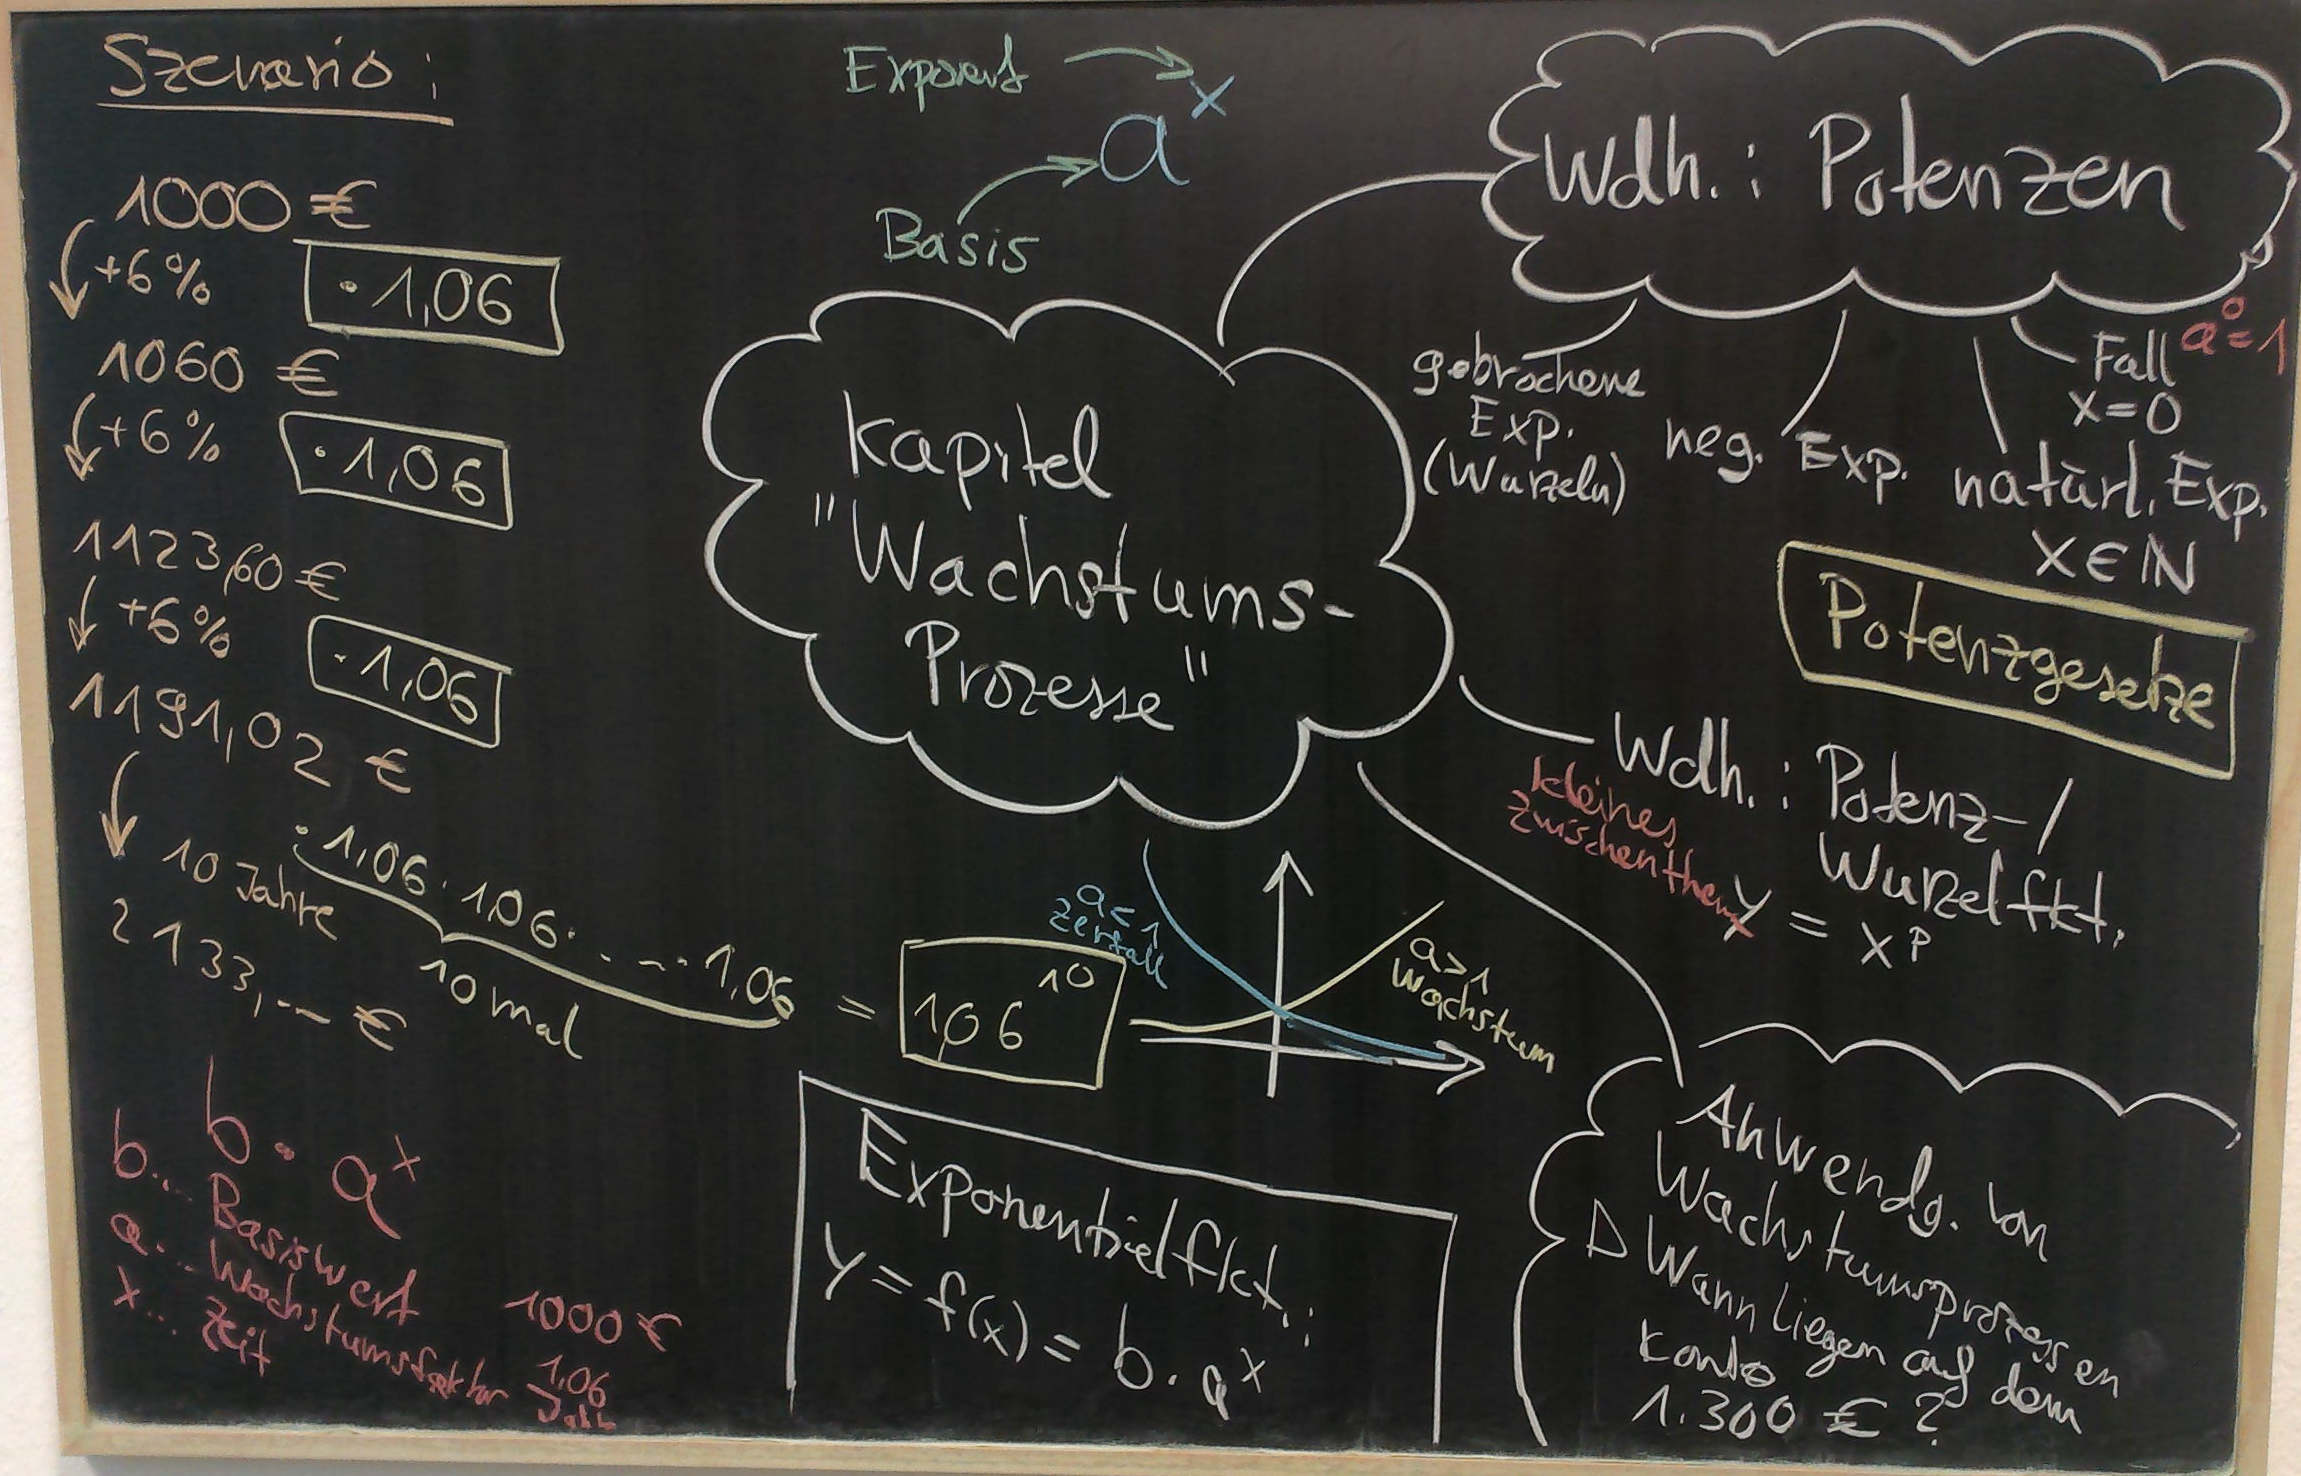 Szenario:
1000 €
+6%
· 1,06
1060 €
+6%
· 1,06
1123,60 €
+6%
· 1,06
1191,02 €
10 Jahre
· 1,06 · 1,06 · . . . . · 1,06
10 mal
= 1,06^10
2133,-- €
b · a^x
b... Basiswert 1000 €
a... Wachstumsfaktor 1,06
x... Zeit
Exponent
a^x
Basis
Kapitel
"Wachstums-
Prozesse"
a < 1
Zerfall
a > 1
Wachstum
Exponentialfkt.:
y = f(x) = b · a^x
Wdh.: Potenzen
gebrochene
Exp.
(Wurzeln)
neg. Exp.
natürl. Exp.
x ∈ ℕ
Fall
x = 0
a^0 = 1
Potenzgesetze
Wdh.: Potenz-/
Wurzelfkt.
y = x^p
kleines
Zwischenthema
Anwendg. von
Wachstumsprozessen
▷ Wann liegen auf dem
Konto
1.300 € ?